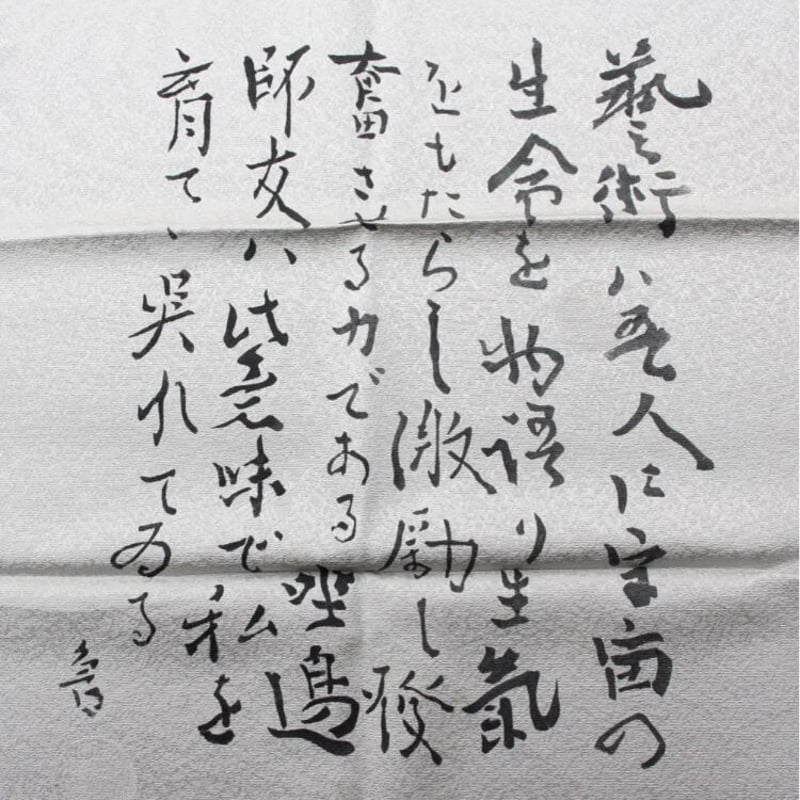 藝術ハ吾人に宇宙の
生命を物語り生氣
をもたらし激励し發
奮させる力である坐邊
師友ハ此意味で私を
育てゝ呉れてゐる
魯